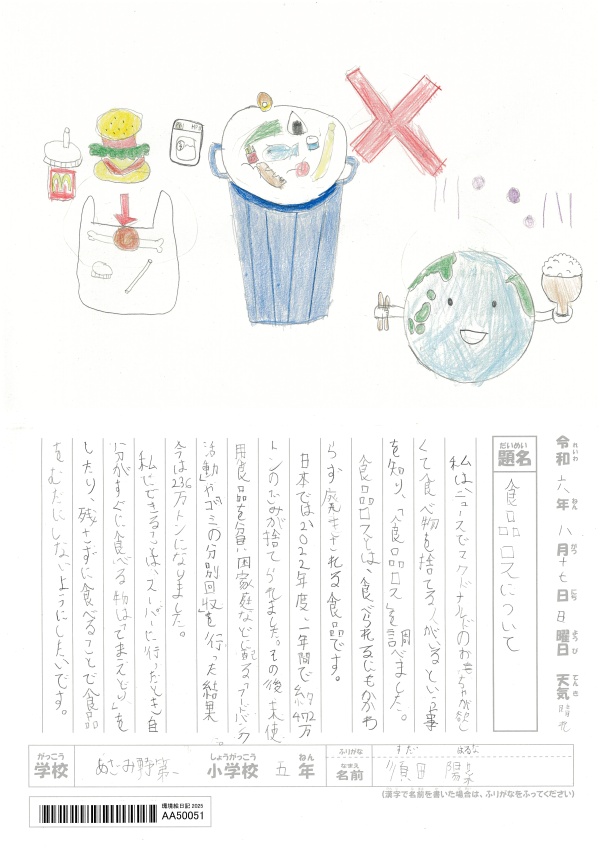 令和六年八月十七日日曜日 天気 晴れ
れいわ ねん がつ にち ようび てんき
題名 食品ロスについて
だいめい
私は、ニュースでマクドナルドのおもちゃが欲し
くて食べ物を捨てる人がいるという事
を知り、「食品ロス」を調べました。
食品ロスとは、食べられるにもかかわ
らず廃きされる食品です。
日本では2022年度、一年間で約472万
トンのごみが捨てられました。その後、未使
用食品を貧困家庭などに配るフードバンク
活動やゴミの分別回収を行った結果
今は236万トンになりました。
私にできることは、スーパーに行ったとき、自
分がすぐに食べる物は「てまえどり」を
したり、残さずに食べることで食品
をむだにしないようにしたいです。
がっこう しょうがっこう ねん ふりがな すだ はるな
学校 あざみ野第一 小学校 五年 名前 須田 陽
なまえ
(漢字で名前を書いた場合は、ふりがなをふってください)
環境絵日記 2025
AA50051